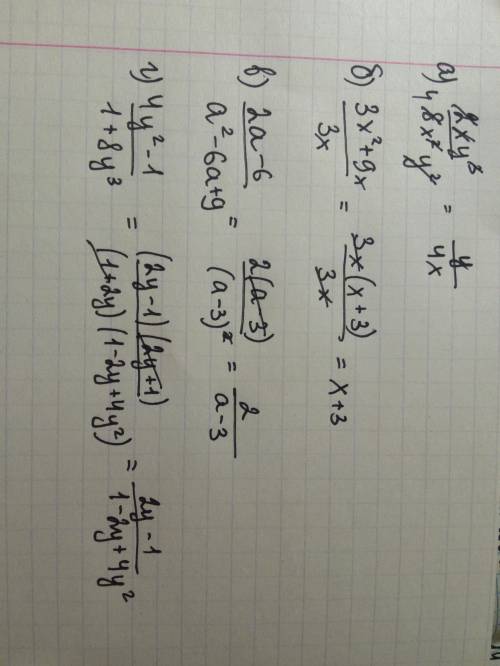 а) 2xy³/4 8x²y² = y/4x
б) 3x²+9x/3x = 3x(x+3)/3x = x+3
в) 2a-6/a²-6a+9 = 2(a-3)/(a-3)² = 2/a-3
г) 4y²-1/1+8y³ = (2y-1)(2y+1)/(1+2y)(1-2y+4y²) = 2y-1/1-2y+4y²